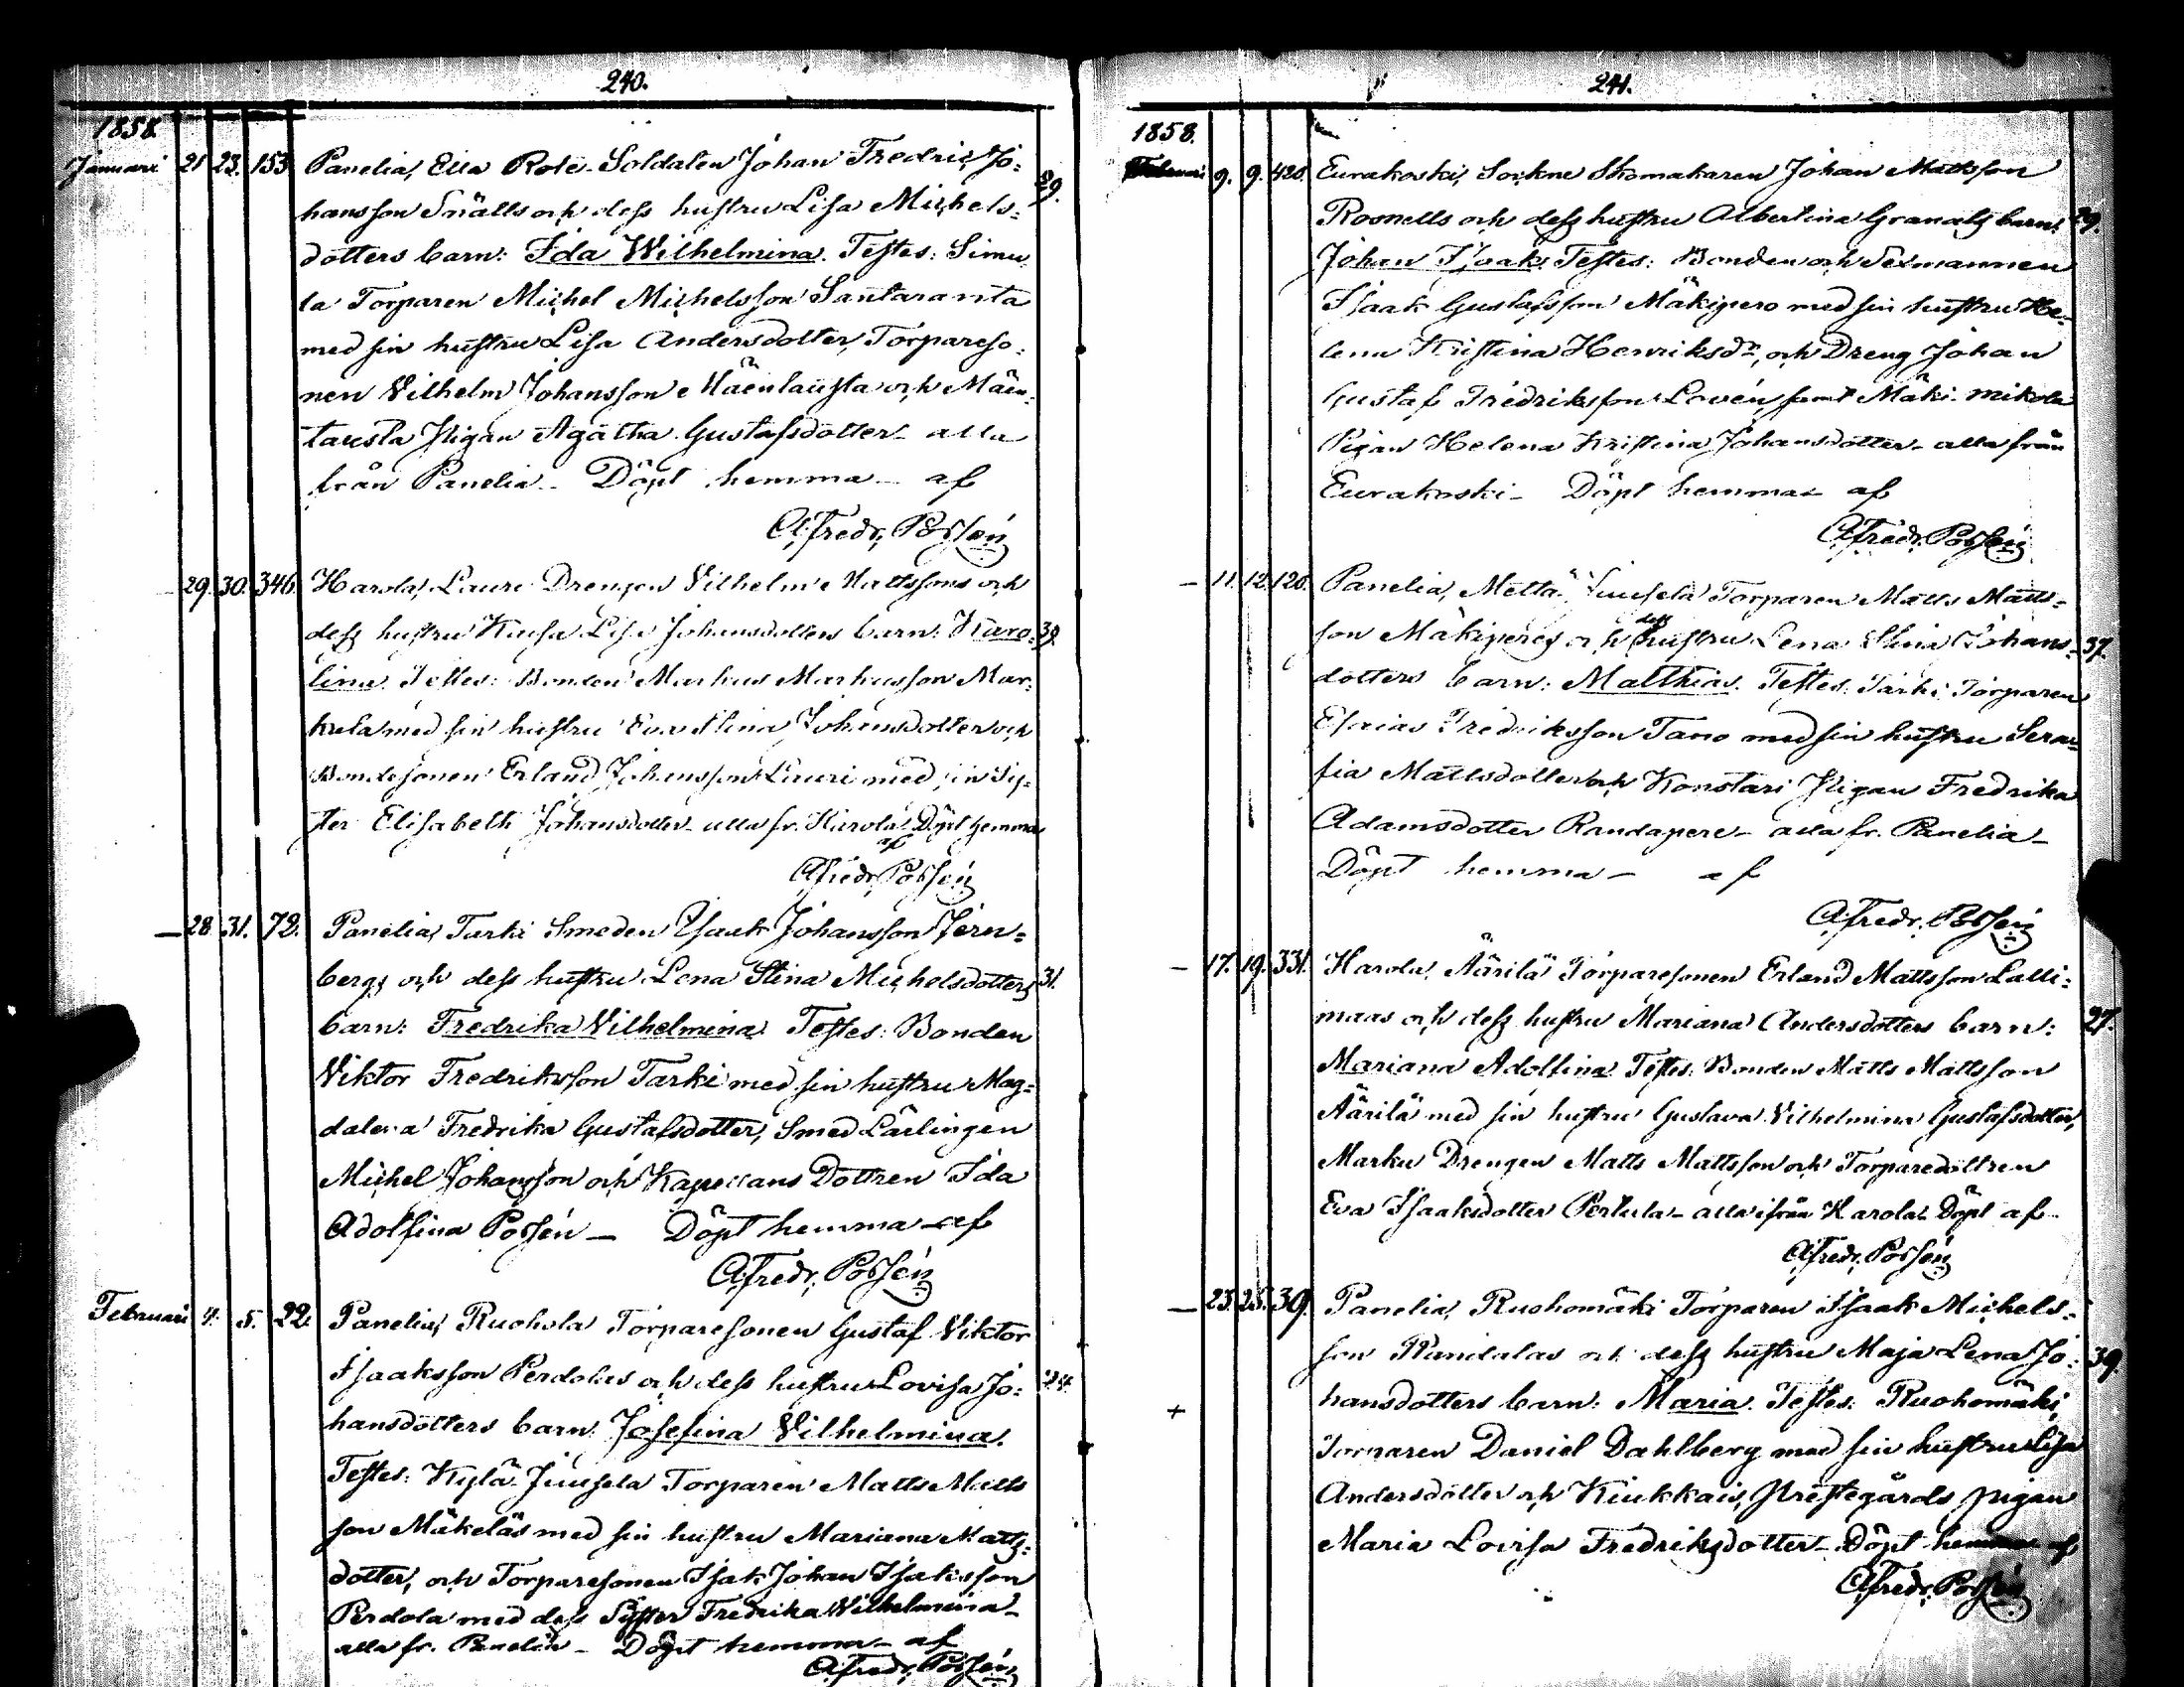 240.
1858.
Januari 21 23. 153 Panelia, Eila Rote-Soldaten Johan Fredric Jo=
hansson Snälls och dess hustru Lisa Michels= 29.
dotters barn: Ida Wilhelmina. Testes: Simu=
la Torparen Michel Michelsson Santaranta
med sin hustru Lisa Andersdotter, Torpareso=
nen Vilhelm Johansson Mäentausta och Mäen=
tausta Pigan Agatha Gustafsdotter - alla
från Panelia - Döpt hemma - af
A. Fredr. Possén
- 29. 30. 346. Harola, Lauri Drengen Vilhelm Mattssons och
dess hustru Kaisa Lisa Johansdotters barn: Karo=
lina. Testes: Bonden Markus Markusson Mar=
kula med sin hustru Eva Stina Johansdotter och
Bondesonen Erland Johansson Lauri med sin Sys=
ter Elisabeth Johansdotter - alla fr. Harola. Döpt hemma
af
A. Fredr. Possén
- 28. 31. 72. Panelia, Tarki Smeden Isaak Johansson Jern=
bergs och dess hustru Lena Stina Michelsdotters 31.
barn: Fredrika Vilhelmina. Testes: Bonden
Viktor Fredriksson Tarki med sin hustru Mag=
dalena Fredrika Gustafsdotter, Smed Lärlingen
Michel Johansson och Kapellans Dottren Ida
Adolfina Possén - Döpt hemma - af
A. Fredr. Possén
Februari 4. 5. 22. Panelia, Ruohola Torparesonen Gustaf Viktor
Isaaksson Perdolas och dess hustru Lovisa Jo= 24.
hansdotters barn: Josefina Vilhelmina.
Testes: Kylä-Juusela Torparen Matts Matts
son Mäkeläs med sin hustru Mariana Matts=
dotter, och Torparesonen Isak Johan Isaksson
Perdola med dess Syster Fredrika Wilhelmina -
alla fr. Panelia - Döpt hemma - af
A. Fredr. Possén
241.
1858.
Februari 9. 9. 420. Eurakoski, Sockne Skomakaren Johan Mattsson
Rosnells och dess hustru Albertina Granats barn: 29.
Johan Isaak. Testes: Bonden och Sexmannen
Isaak Gustafsson Mäkipero med sin hustru He=
lena Kristina Henriksdr, och Dreng Johan
Gustaf Fredriksson Lovén, samt Mäki-mikola
Pigan Helena Kristina Johansdotter - alla från
Eurakoski - Döpt hemma - af
A. Fredr. Possén
- 11. 12. 120. Panelia, Mettä-Juusela Torparen Matts Matts=
son Mäkiperes och dess hustru Lena Stina Johans= 37.
dotters barn: Matthias. Testes: Tarki Torparen
Esaias Fredriksson Tano med sin hustru Sera=
fia Mattsdotter och Konstari Pigan Fredrika
Adamsdotter Randapere - alla fr. Panelia -
Döpt hemma - af
A. Fredr. Possén
- 17. 19. 331. Harola, Äärilä Torparesonen Erland Mattsson Lalli=
maas och dess hustru Mariana Andersdotters barn: 27.
Mariana Adolfina. Testes: Bonden Matts Mattsson
Äärilä med sin hustru Gustava Vilhelmina Gustafsdotter,
Marku Drengen Matts Mattsson och Torparedottren
Eva Isaaksdotter Pertula - alla ifrån Harola. Döpt af
A. Fredr. Possén
- 23. 25. 39. Panelia, Ruohomäki Torparen Isaak Michels=
son och dess hustru Maja Lena Jo= 39.
+ hansdotters barn: Maria. Testes: Ruohomäki
Torparen Daniel Dahlberg med sin hustru Lisa
Andersdotter och Kiukkais Prestegårds pigan
Maria Lovisa Fredriksdotter - Döpt hemma af
A. Fredr. Possén